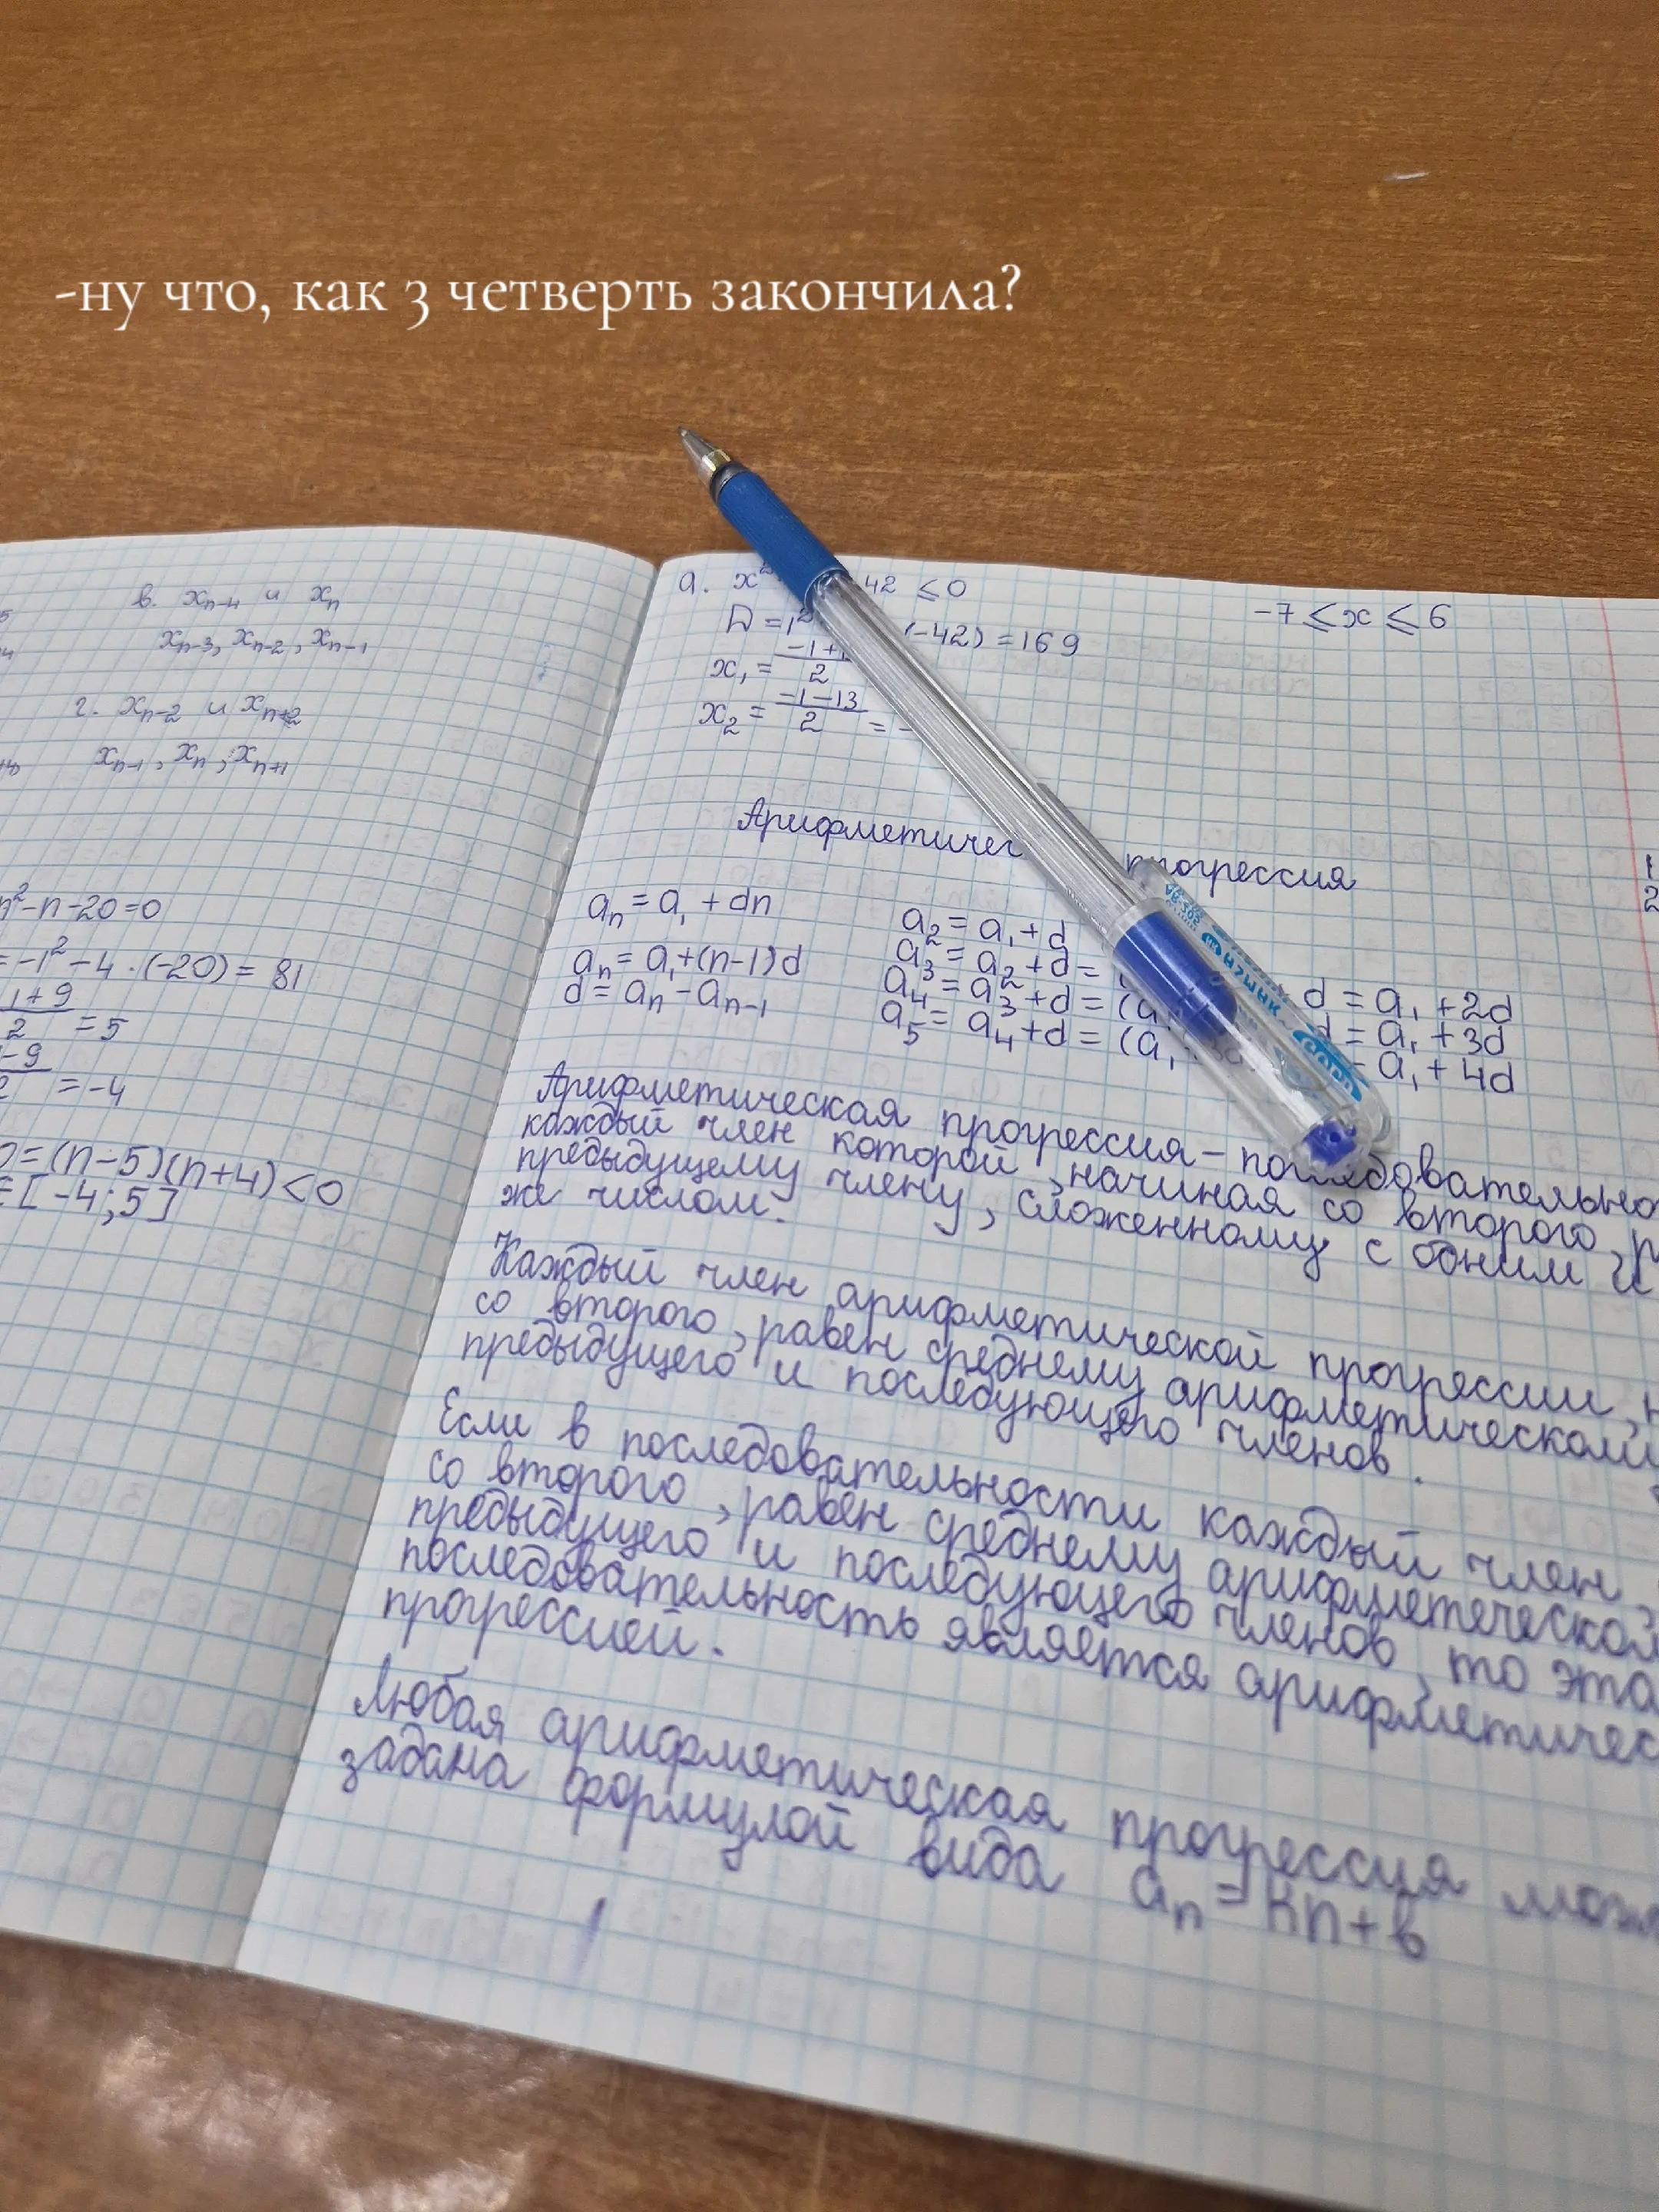 -ну что, как 3 четверть закончила?
в. xₙ₋₄ и xₙ
xₙ₋₃, xₙ₋₂, xₙ₋₁
г. xₙ₋₂ и xₙ₊₂
xₙ₋₁, xₙ, xₙ₊₁
n²-n-20=0
=-1²-4·(-20)=81
1+9
2 =5
-9
2 =-4
=(n-5)(n+4)<0
=[-4;5]
а. x² 42 ≤0
-7≤x≤6
D=1² (-42)=169
x₁= -1+
2
x₂= -1-13
2 =-
Арифметичес прогрессия
aₙ=a₁+dn
aₙ=a₁+(n-1)d
d=aₙ-aₙ₋₁
a₂=a₁+d
a₃=a₂+d=( d=a₁+2d
a₄=a₃+d=(a₁ d=a₁+3d
a₅=a₄+d=(a₁ =a₁+4d
Арифметическая прогрессия-последовательно
каждый член которой, начиная со второго, р
предыдущему члену, сложенному с одним и
же числом.
Каждый член арифметической прогрессии, н
со второго, равен среднему арифметическому
предыдущего и последующего членов.
Если в последовательности каждый член,
со второго, равен среднему арифметеческом
предыдущего и последующего членов, то эта
последовательность является арифметичес
прогрессией.
Любая арифметическая прогрессия мож
задана формулой вида aₙ=kn+b
1
2